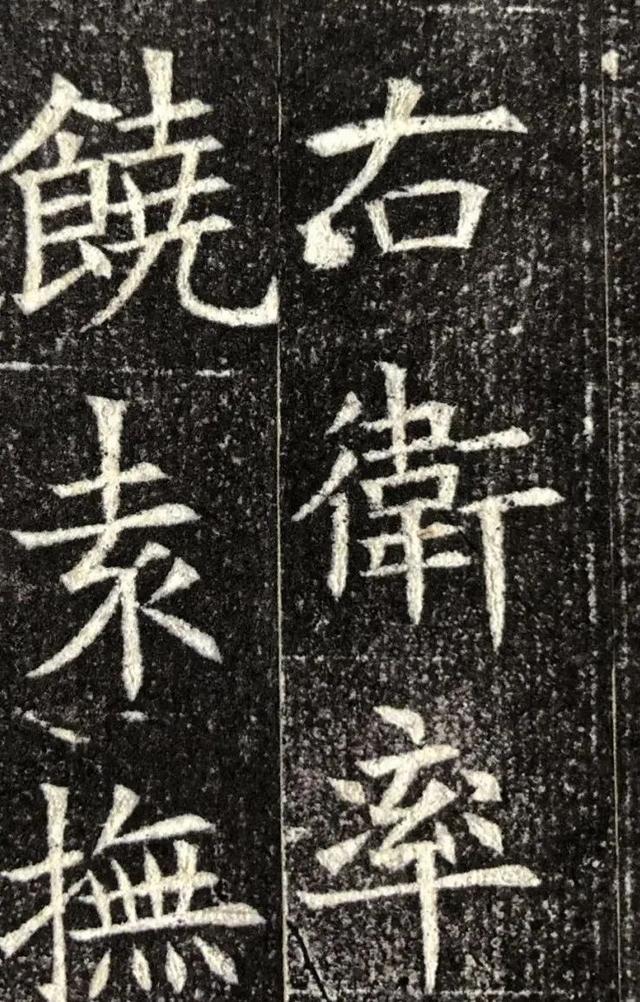 右衛率
饒素撫